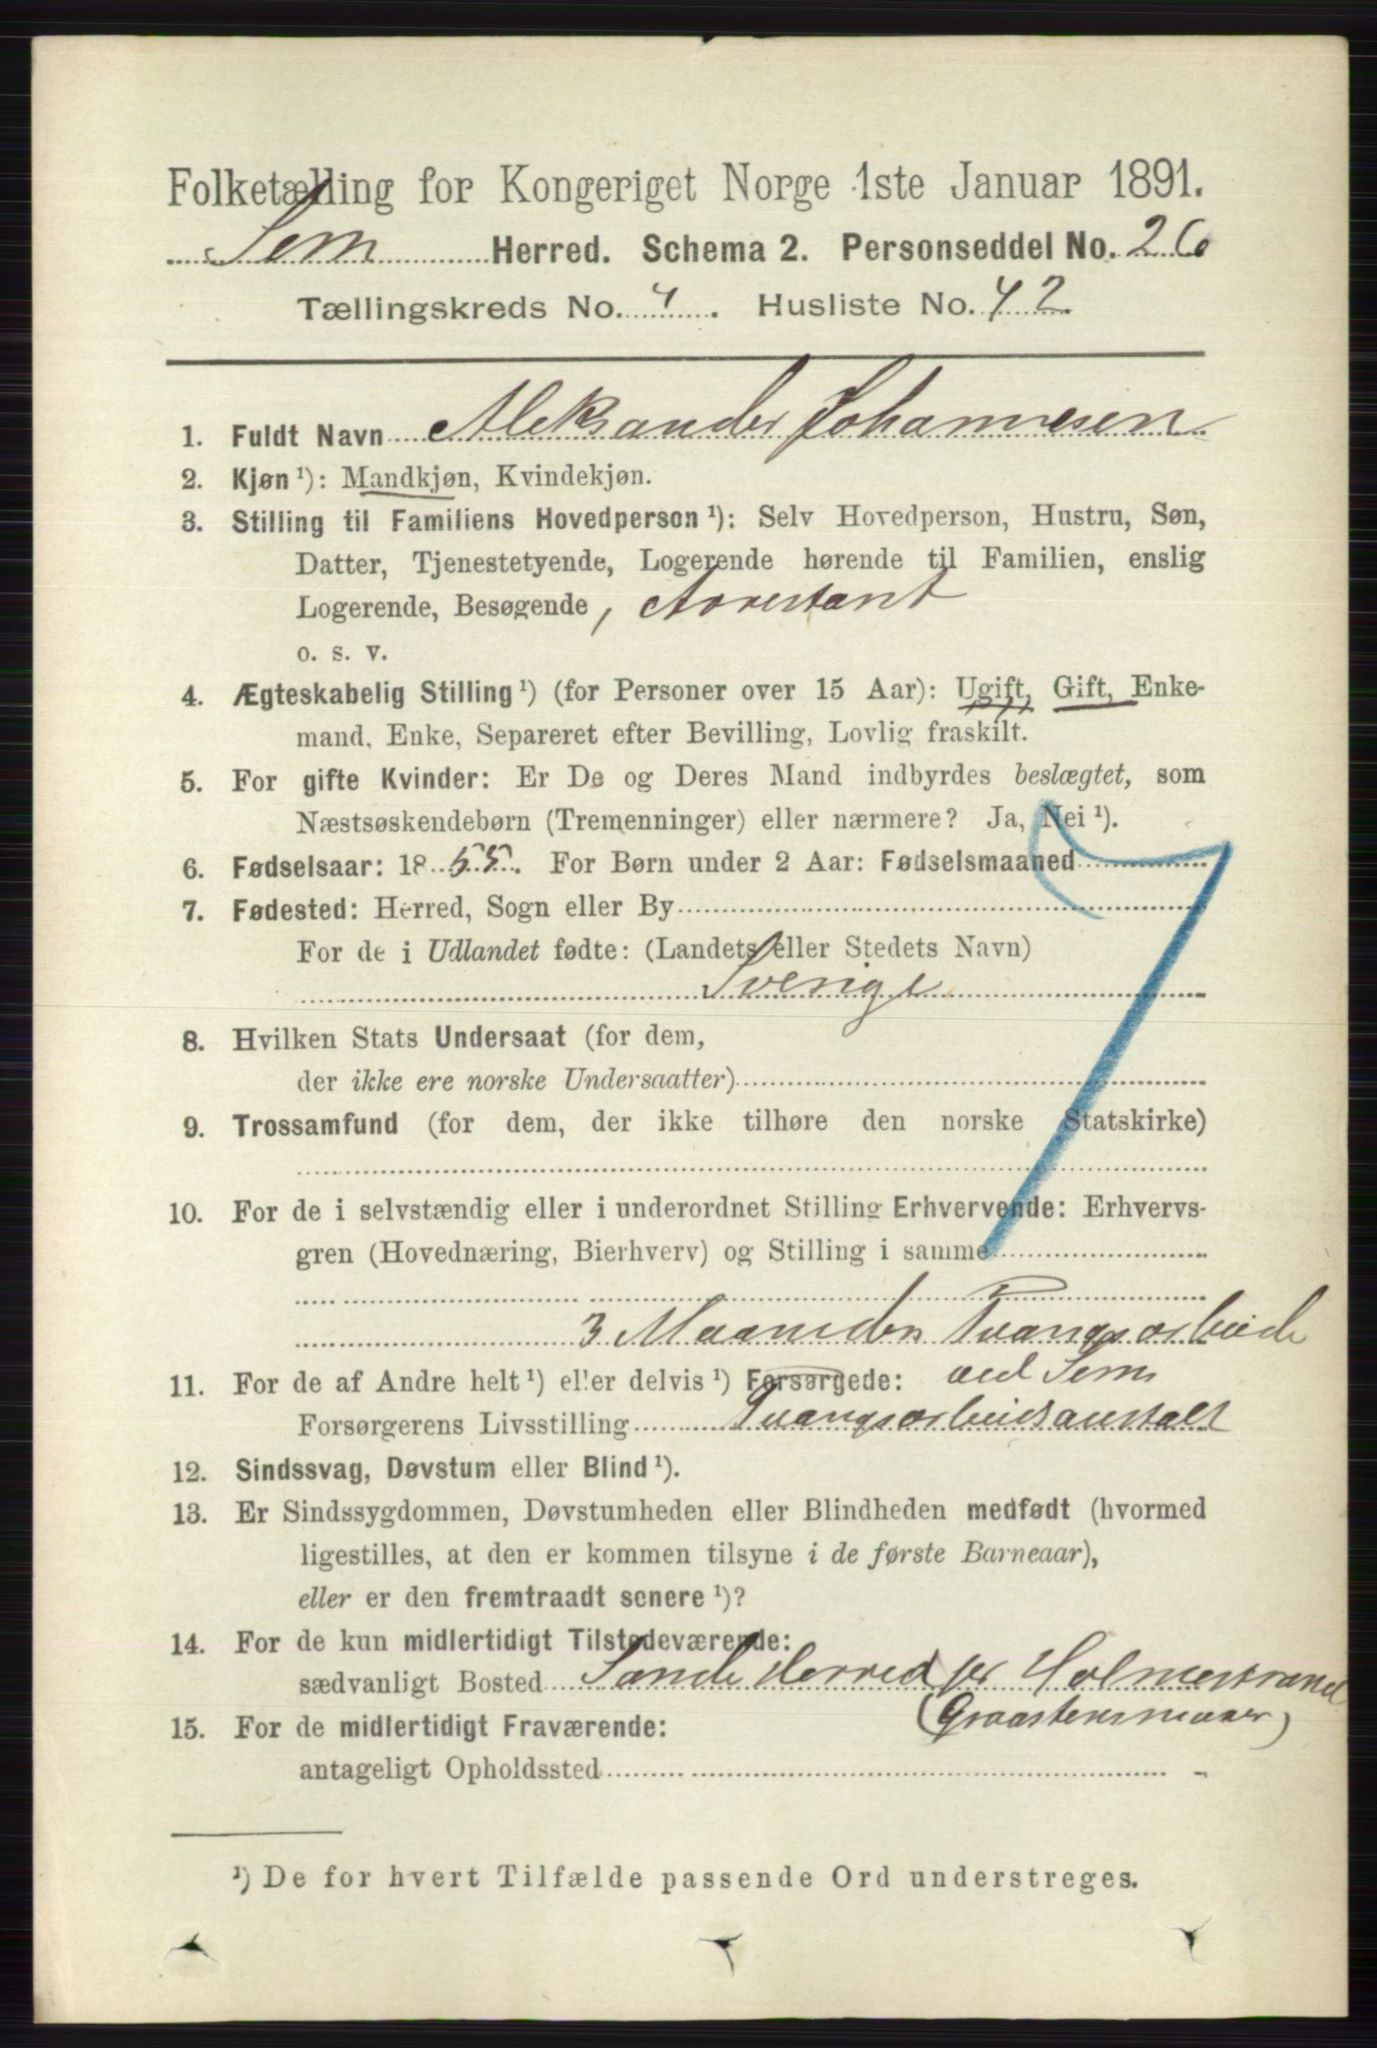 Folketælling for Kongeriget Norge 1ste Januar 1891.
Sem Herred. Schema 2. Personseddel No. 26
Tællingskreds No. 4. Husliste No. 42
1. Fuldt Navn Aleksander Johannesen
2. Kjøn ¹): Mandkjøn, Kvindekjøn.
3. Stilling til Familiens Hovedperson ¹): Selv Hovedperson, Hustru, Søn,
Datter, Tjenestetyende, Logerende hørende til Familien, enslig
Logerende, Besøgende, Arrestant
o. s. v.
4. Ægteskabelig Stilling ¹) (for Personer over 15 Aar): Ugift, Gift, Enke-
mand, Enke, Separeret efter Bevilling, Lovlig fraskilt.
5. For gifte Kvinder: Er De og Deres Mand indbyrdes beslægtet, som
Næstsøskendebørn (Tremenninger) eller nærmere? Ja, Nei ¹).
6. Fødselsaar: 1855. For Børn under 2 Aar: Fødselsmaaned
7. Fødested: Herred, Sogn eller By
For de i Udlandet fødte: (Landets eller Stedets Navn)
Sverige
8. Hvilken Stats Undersaat (for dem,
der ikke ere norske Undersaatter)
9. Trossamfund (for dem, der ikke tilhøre den norske Statskirke)
10. For de i selvstændig eller i underordnet Stilling Erhvervende: Erhvervs-
gren (Hovednæring, Bierhverv) og Stilling i samme
3 Maaneders Tvangsarbeide
11. For de af Andre helt ¹) eller delvis ¹) Forsørgede: ved Sems
Forsørgerens Livsstilling Tvangsarbeidsanstalt
12. Sindssvag, Døvstum eller Blind ¹).
13. Er Sindssygdommen, Døvstumheden eller Blindheden medfødt (hvormed
ligestilles, at den er kommen tilsyne i de første Barneaar),
eller er den fremtraadt senere ¹)?
14. For de kun midlertidigt Tilstedeværende:
sædvanligt Bosted Sande Herred pr Holmestrand
(Graastensmoen)
15. For de midlertidigt Fraværende:
antageligt Opholdssted
¹) De for hvert Tilfælde passende Ord understreges.